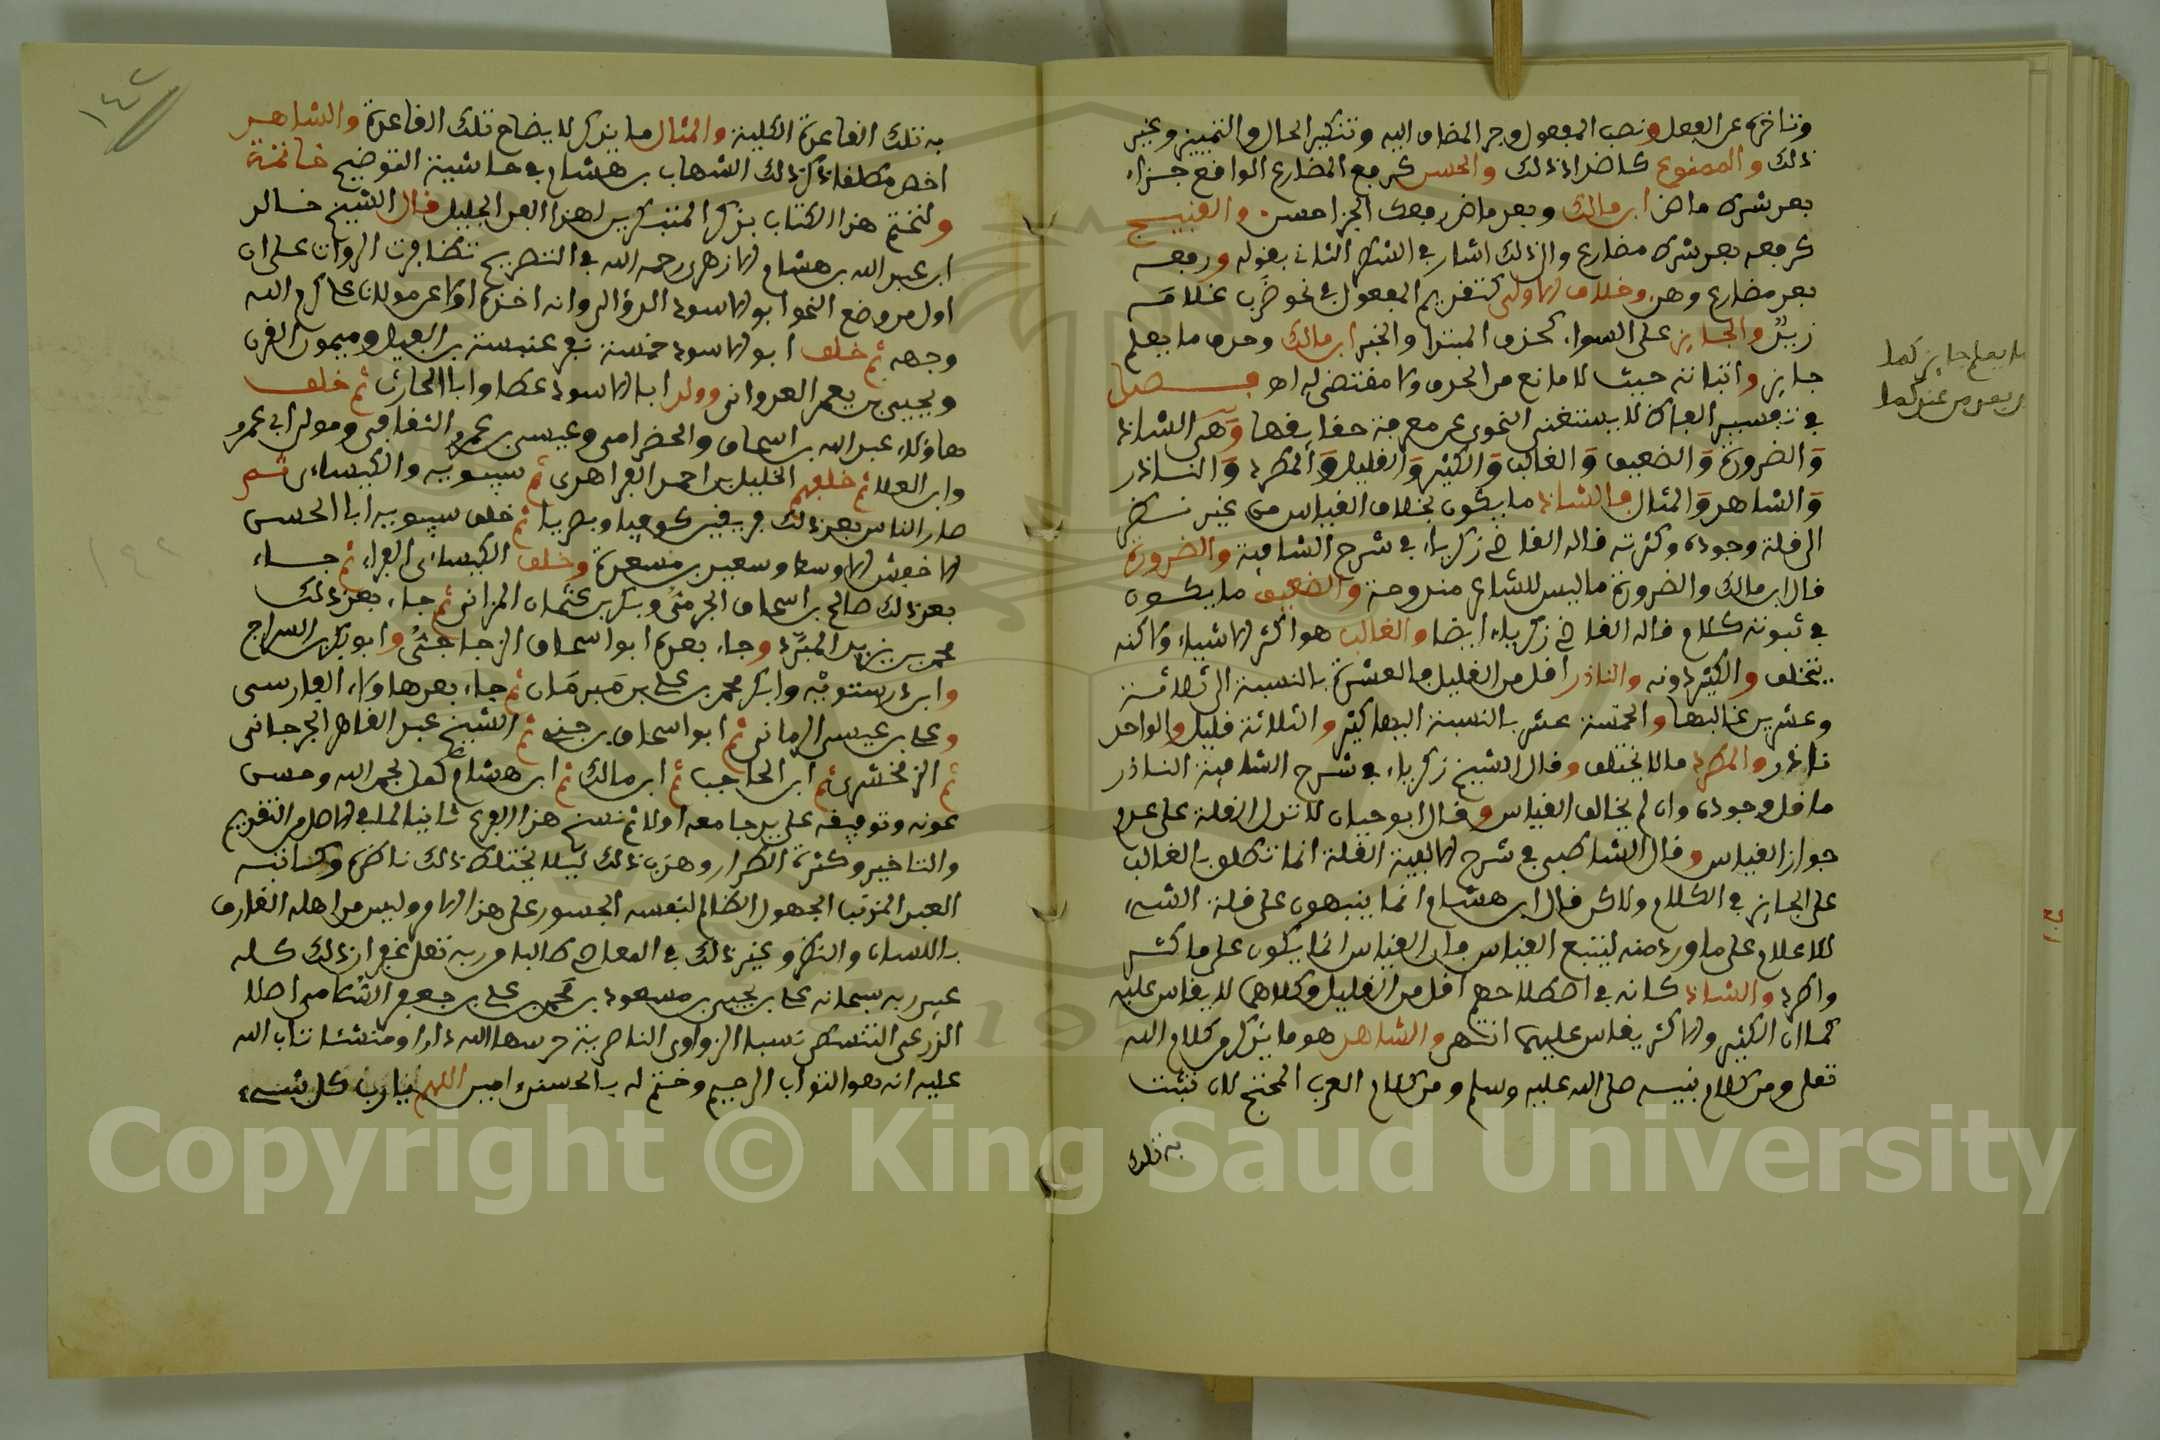 وتاخره عن الفعل ونصب المفعول وجر المضاف اليه وتنكير الحال والتمييز وغير
ذلك والممنوع كاضداد ذلك والحسن كرفع المضارع الواقع جزاء
بعد شرط ماض ابن مالك وبعد ماض رفعك الجزا حسن والقبيح
كرفعه بعد شرط مضارع والى ذلك اشار في الشطر الثاني بقوله ورفعه
بعد مضارع وهن وخلاف الاولى كتقديم المفعول في نحو ضَرب غلامَه
زيدٌ والجايز على السواء كحذف المبتدا والخبر ابن مالك وحذف ما يعلم
جايز واثباته حيث لا مانع من الحذف ولا مقتضى له اهـ فصل
في تفسير الفاظ لا يستغني النحوي عن معرفة حقايقها وَهي الشاذ
وَالضرورة وَالضعيف وَالغالب وَالكثير وَالقليل وَالمطرد وَالنادر
وَالشاهد وَالمثال فالشاذ ما يكون بخلاف القياس من غير نظر
الى قلة وجوده وكثرته قاله القاضي زكرياء في شرح الشافية والضرورة
قال ابن مالك والضرورة ما ليس للشاعر مندوحة والضعيف ما يكون
في ثبوته كلام قاله القاضي زكرياء ايضا والغالب هو اكثر الاشياء ولاكنه
يتخلف والكثير دونه والنادر اقل من القليل فالعشرة بالنسبة الى ثلاثة
وعشرين غالبها والخمسة عشر بالنسبة اليها كثير والثلاثة قليل والواحد
نادر والمطرد ما لا يختلف وقال الشيخ زكرياء في شرح الشافية النادر
ما قل وجوده وان لم يخالف القياس وقال ابو حيان لا تدل القلة على عدم
جواز القياس وقال الشاطبي في شرح الالفية القلة انما تطلق بالغالب
على الجايز في الكلام ولاكن قال ابن هشام انما ينبهون على قلة الشيء
للاعلام على ما ورد منه ليتبع القياس فان القياس انما يكون على ما كثر
واطرد والشاذ كانه في اصطلاحهم اقل من القليل وكلاهما لا يقاس عليه
كما ان الكثير والاكثر يقاس عليهما انتهى والشاهد هو ما يذكر من كلام الله
تعلى ومن كلام نبيه صلى الله عليه وسلم ومن كلام العرب المحتج لان تثبت
به تلك
ما يعلم جايز كما
به تلك القاعدة الكلية والمثال ما يذكر لايضاح تلك القاعدة والشاهد
اخص مطلقا ذكر ذلك الشهاب بن هشام في حاشية التوضيح خاتمة
ولنختم هذا الكتاب بذكر المبتكرين لهذا الفن الجليل قال الشيخ خالد
ابن عبد الله بن هشام الازهري رحمه الله في التصريح تظافرت الروات على ان
اول من وضع النحو ابو الاسود الدؤلي وانه اخذه اولا عن مولانا علي كرم الله
وجهه ثم خلف ابو الاسود خمسة نفر عنبسة بن الفيل وميمون الاقرن
ويحيى بن يعمر العدواني وولد ابا الاسود عطا وابا الحارث ثم خلف
هاؤلاء عبد الله بن اسحاق والحضرامي وعيسى بن عمرو الثقافي ومولى ابي عمرو
وابن العلا ثم خلفهم الخليل بن احمد الفراهدي ثم سيبويه والكيساءي ثم
صار الناس بعد ذلك فريقين كوفيا وبصريا ثم خلف سيبويه ابا الحسن
الاخفش الاوسط وسعيد بن مسعدة وخلف الكيساءي الفراء ثم جاء
بعد ذلك صالح بن اسحاق الجرمي وبكر بن عثمان المزاني ثم جاء بعد ذلك
محمد بن يزيد المبرّد وجاء بعده ابو اسحاق الزجاجي وابو بكر بن السراج
وابن درستويْه وابكر محمد بن علي بن مَبرمَان ثم جاء بعد هاولاء الفارسي
وعلي بن عيسى الرماني ثم ابو اسحاق بن جني ثم الشيخ عبد القاهر الجرجاني
ثم الزمخشري ثم ابن الحاجب ثم ابن مالك ثم ابن هشام كمل بحمد الله وحسن
عونه وتوفيقه على يد جامعه اولا ثم نسخ هذا الفرع ثانيا لما في الاصل من التقديم
والتاخير وكثرة الطرار وهذب ذلك ليلا يختلط ذلك ناظره وكاتبه
العبد المذنب الجهول الظالم لنفسه الجسور على هذا الامر وليس من اهله الغارق
باللسان والنظر وغير ذلك في المعاصي طالبا من ربه تعلى غفران ذلك كله
عبيد ربه سبحانه علي بن يحيى بن مسعود بن محمد بن علي بن جعفر الشكامي اصلا
الزرعي النتشطي نسبا الزواوي الناصرية حرسها الله دارا ومنشئا تاب الله
عليه انه هو التواب الرحيم وختم له بالحسنى امين اللهم يارب كل شيء
١٤٢
Copyright © King Saud University